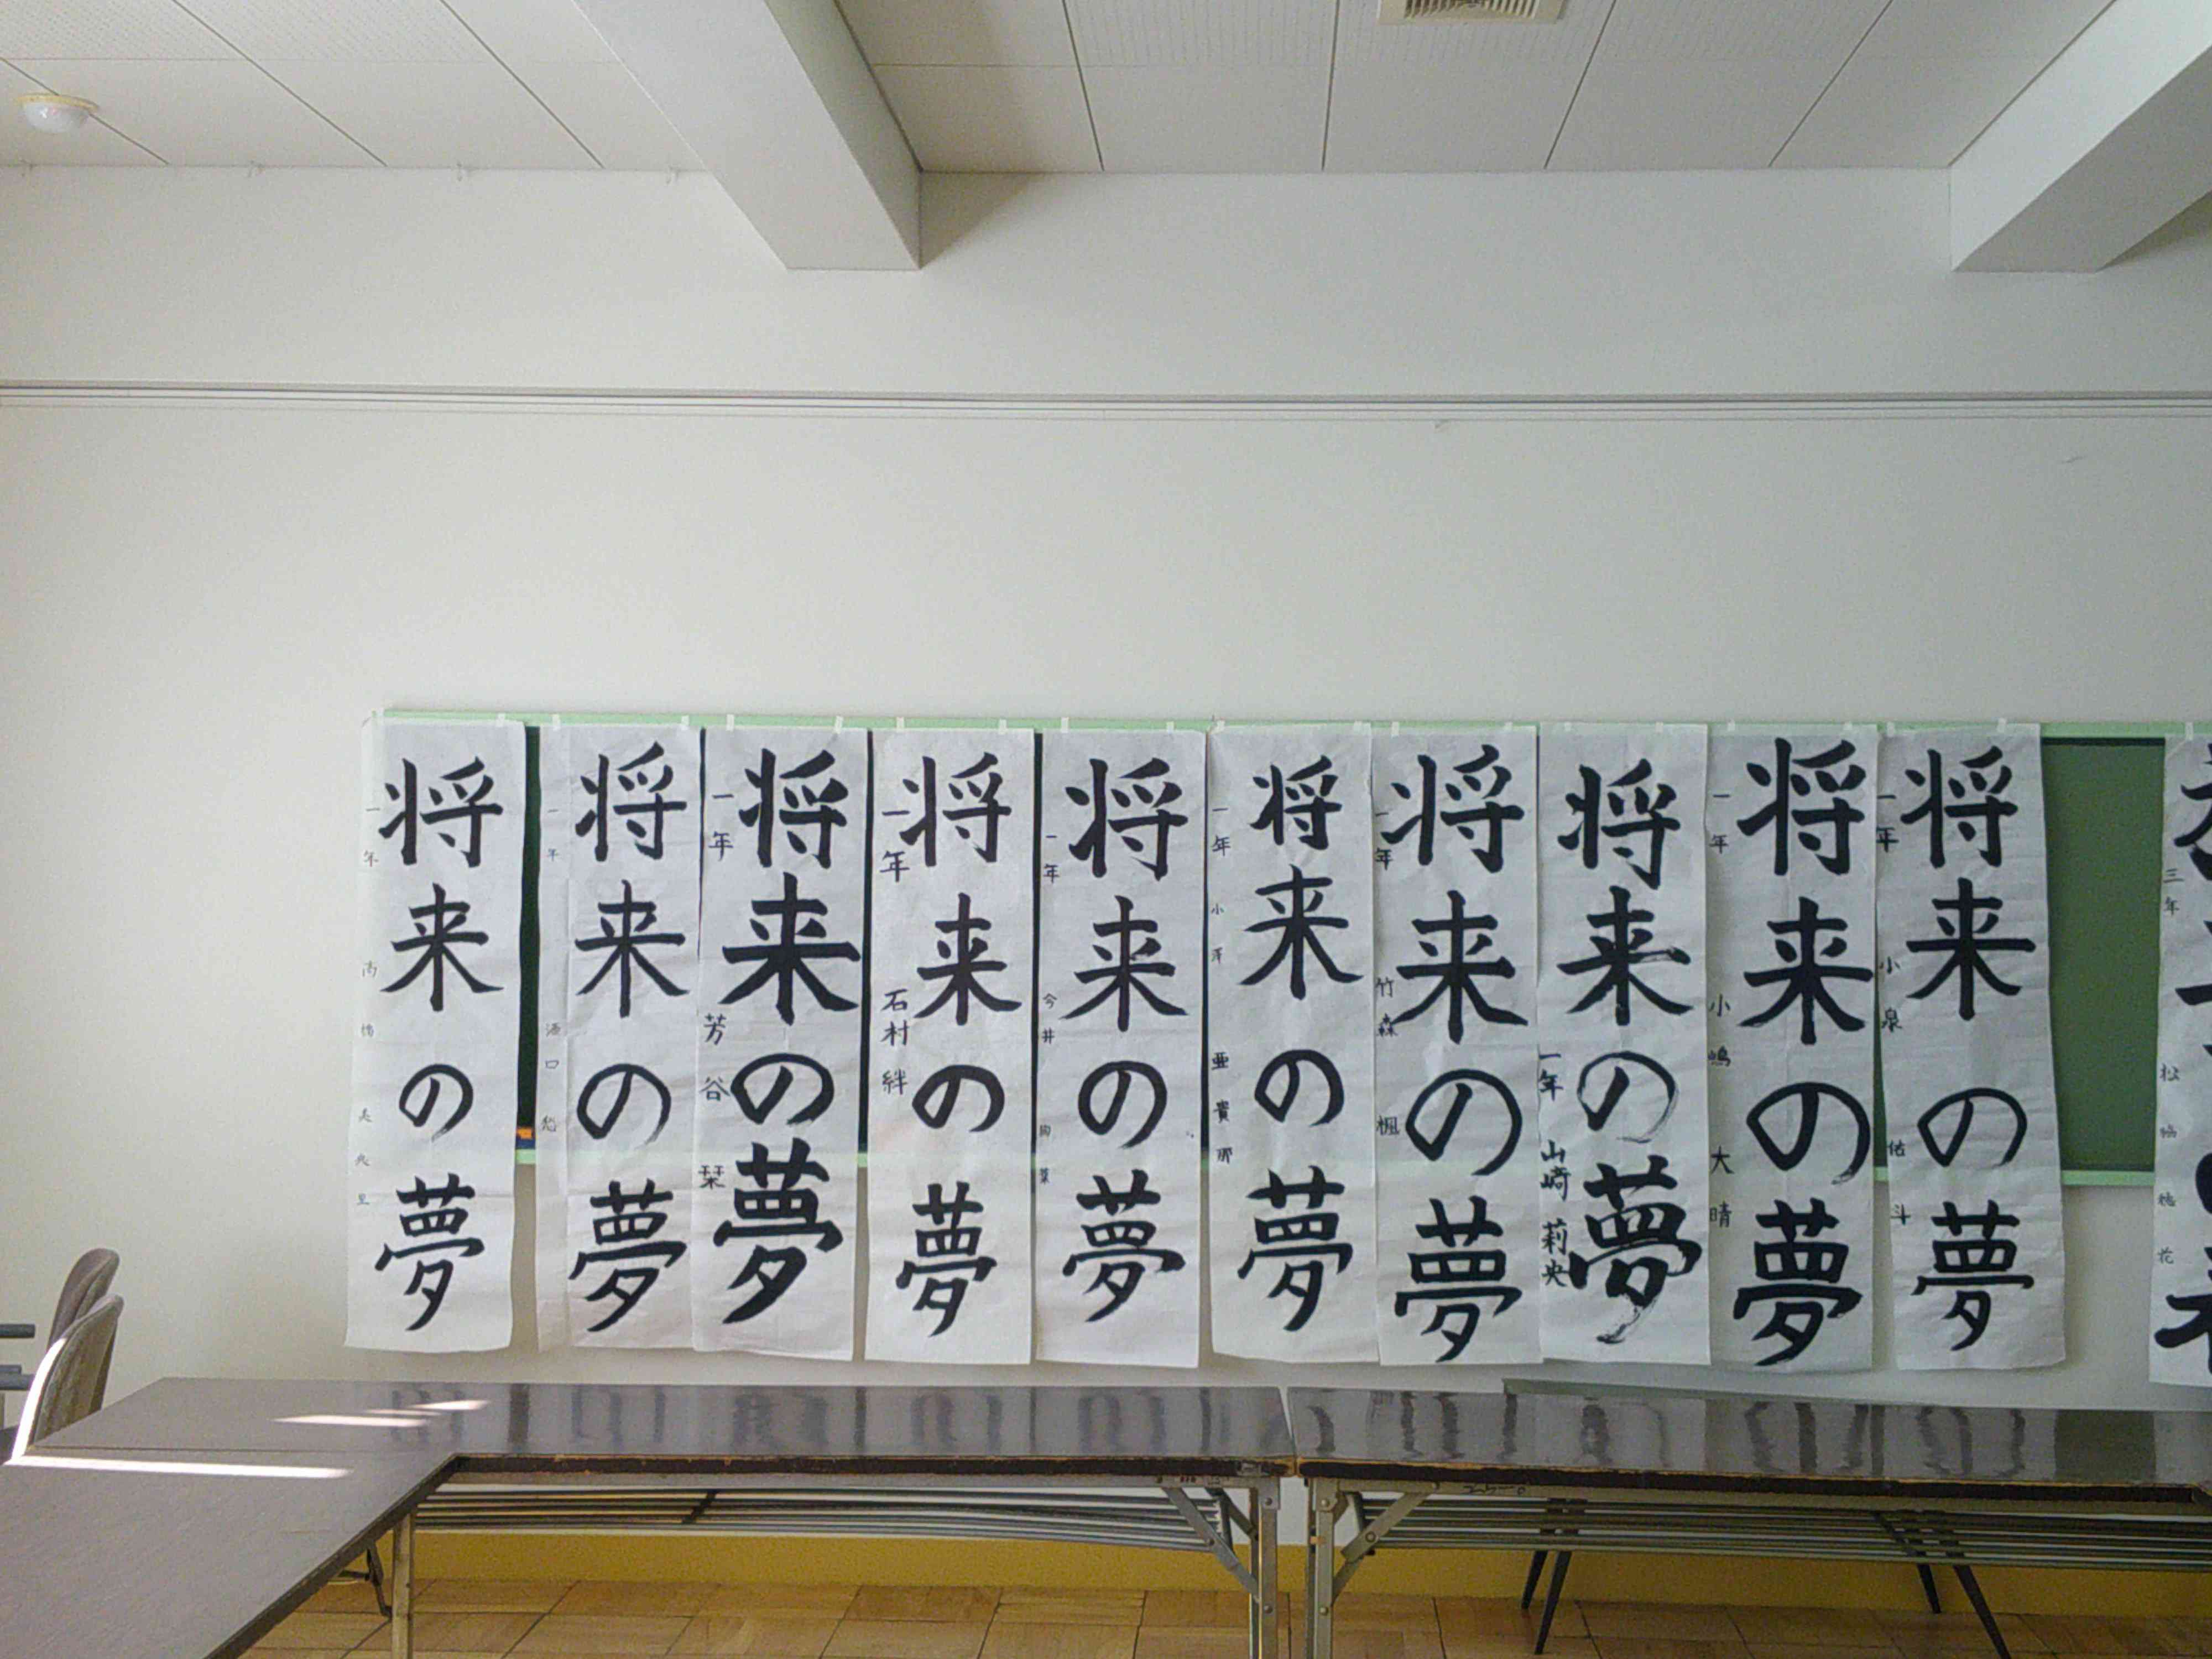 将来の夢
一年
将来の夢
一年
将来の夢
一年 芳谷 栞
将来の夢
一年 石村 絆
将来の夢
一年 今井
将来の夢
一年 小澤 亜實那
将来の夢
一年 竹森 楓
将来の夢
一年 山崎 莉央
将来の夢
一年 小嶋 大晴
将来の夢
一年 小泉 佑斗
三年 松脇 穂花